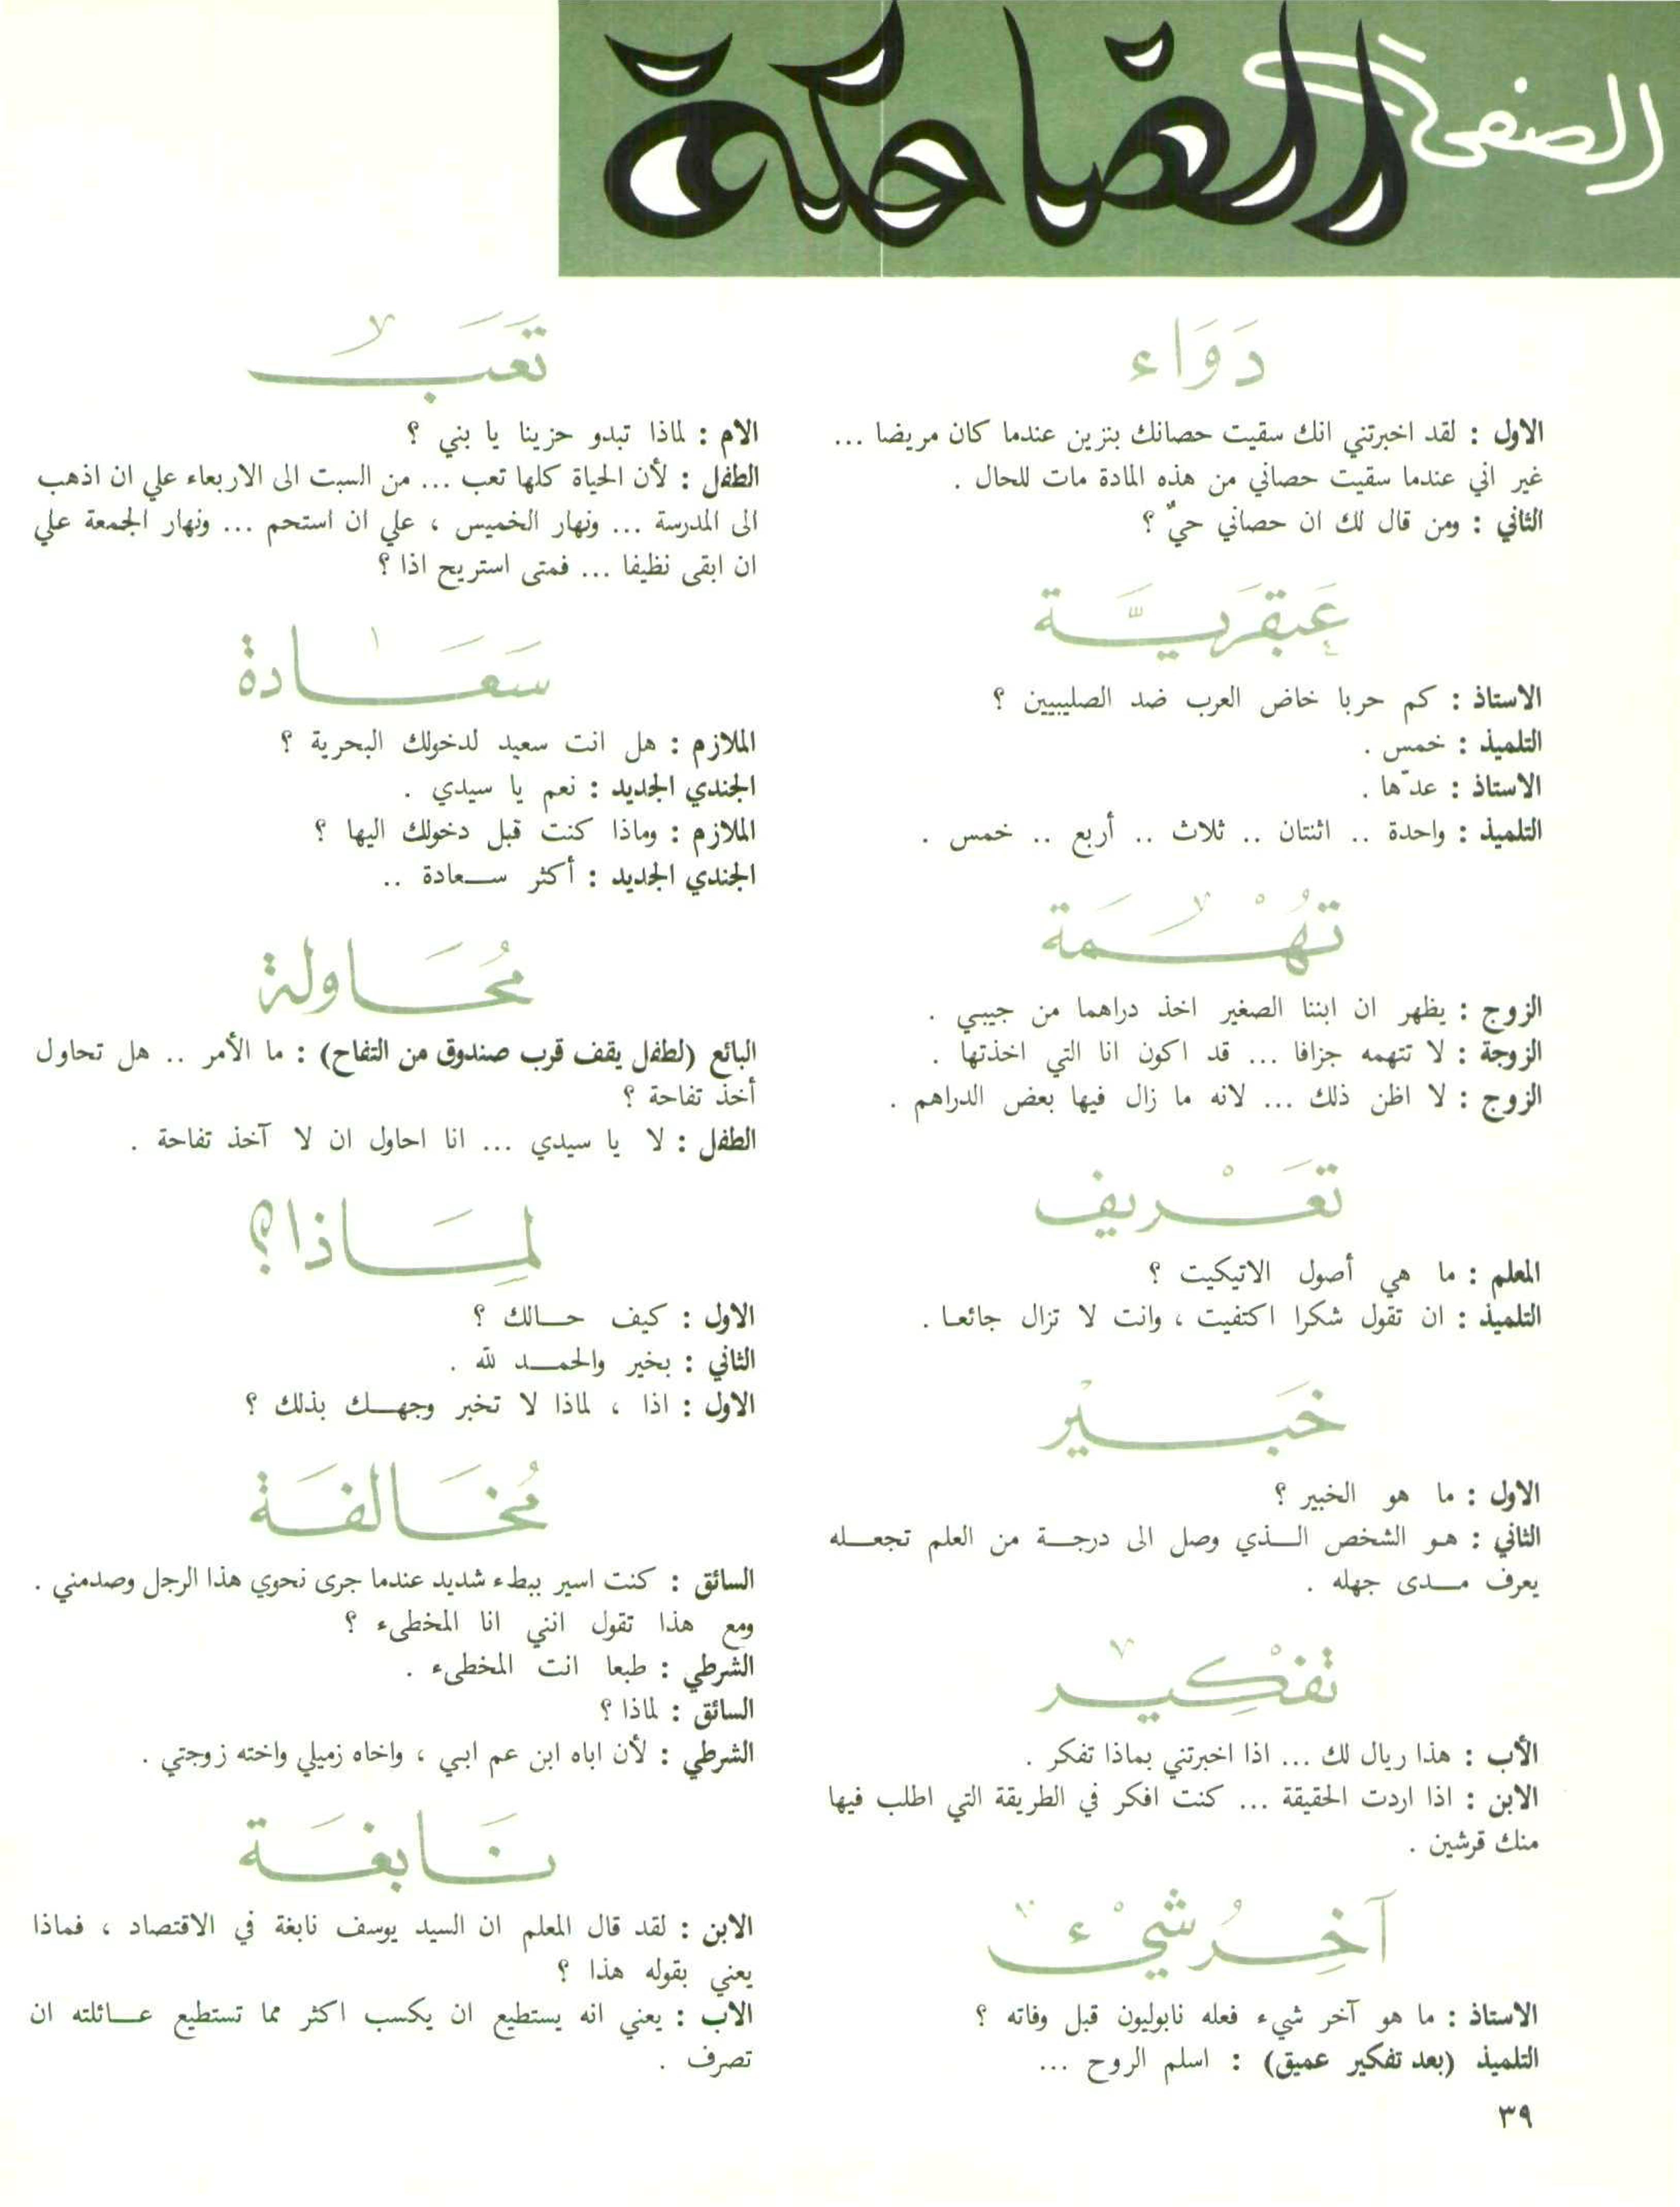 الصفحة الضاحكة
دَوَاء
الاول : لقد اخبرتني انك سقيت حصانك بنزين عندما كان مريضا ...
غير اني عندما سقيت حصاني من هذه المادة مات للحال .
الثاني : ومن قال لك ان حصاني حيٌ ؟
عَبقَريَّة
الاستاذ : كم حربا خاض العرب ضد الصليبيين ؟
التلميذ : خمس .
الاستاذ : عدّها .
التلميذ : واحدة .. اثنتان .. ثلاث .. أربع .. خمس .
تُهْمَة
الزوج : يظهر ان ابننا الصغير اخذ دراهما من جيبي .
الزوجة : لا تتهمه جزافا ... قد اكون انا التي اخذتها .
الزوج : لا اظن ذلك ... لانه ما زال فيها بعض الدراهم .
تَعْريف
المعلم : ما هي أصول الاتيكيت ؟
التلميذ : ان تقول شكرا اكتفيت ، وانت لا تزال جائعا .
خَبيْر
الاول : ما هو الخبير ؟
الثاني : هو الشخص الذي وصل الى درجة من العلم تجعله
يعرف مدى جهله .
تفْكِير
الأب : هذا ريال لك ... اذا اخبرتني بماذا تفكر .
الابن : اذا اردت الحقيقة ... كنت افكر في الطريقة التي اطلب فيها
منك قرشين .
آخِرُ شَيْء
الاستاذ : ما هو آخر شيء فعله نابوليون قبل وفاته ؟
التلميذ (بعد تفكير عميق) : اسلم الروح ...
٣٩
تَعَب
الام : لماذا تبدو حزينا يا بني ؟
الطفل : لأن الحياة كلها تعب ... من السبت الى الاربعاء علي ان اذهب
الى المدرسة ... ونهار الخميس ، علي ان استحم ... ونهار الجمعة علي
ان ابقى نظيفا ... فمتى استريح اذا ؟
سَعَادة
الملازم : هل انت سعيد لدخولك البحرية ؟
الجندي الجديد : نعم يا سيدي .
الملازم : وماذا كنت قبل دخولك اليها ؟
الجندي الجديد : أكثر سعادة ..
مُحَاولة
البائع (لطفل يقف قرب صندوق من التفاح) : ما الأمر .. هل تحاول
أخذ تفاحة ؟
الطفل : لا يا سيدي ... انا احاول ان لا آخذ تفاحة .
لِمَاذا؟
الاول : كيف حالك ؟
الثاني : بخير والحمد لله .
الاول : اذا ، لماذا لا تخبر وجهك بذلك ؟
مُخَالفَة
السائق : كنت اسير ببطء شديد عندما جرى نحوي هذا الرجل وصدمني .
ومع هذا تقول انني انا المخطىء ؟
الشرطي : طبعا انت المخطىء .
السائق : لماذا ؟
الشرطي : لأن اباه ابن عم ابي ، واخاه زميلي واخته زوجتي .
نَابغَة
الابن : لقد قال المعلم ان السيد يوسف نابغة في الاقتصاد ، فماذا
يعني بقوله هذا ؟
الاب : يعني انه يستطيع ان يكسب اكثر مما تستطيع عائلته ان
تصرف .